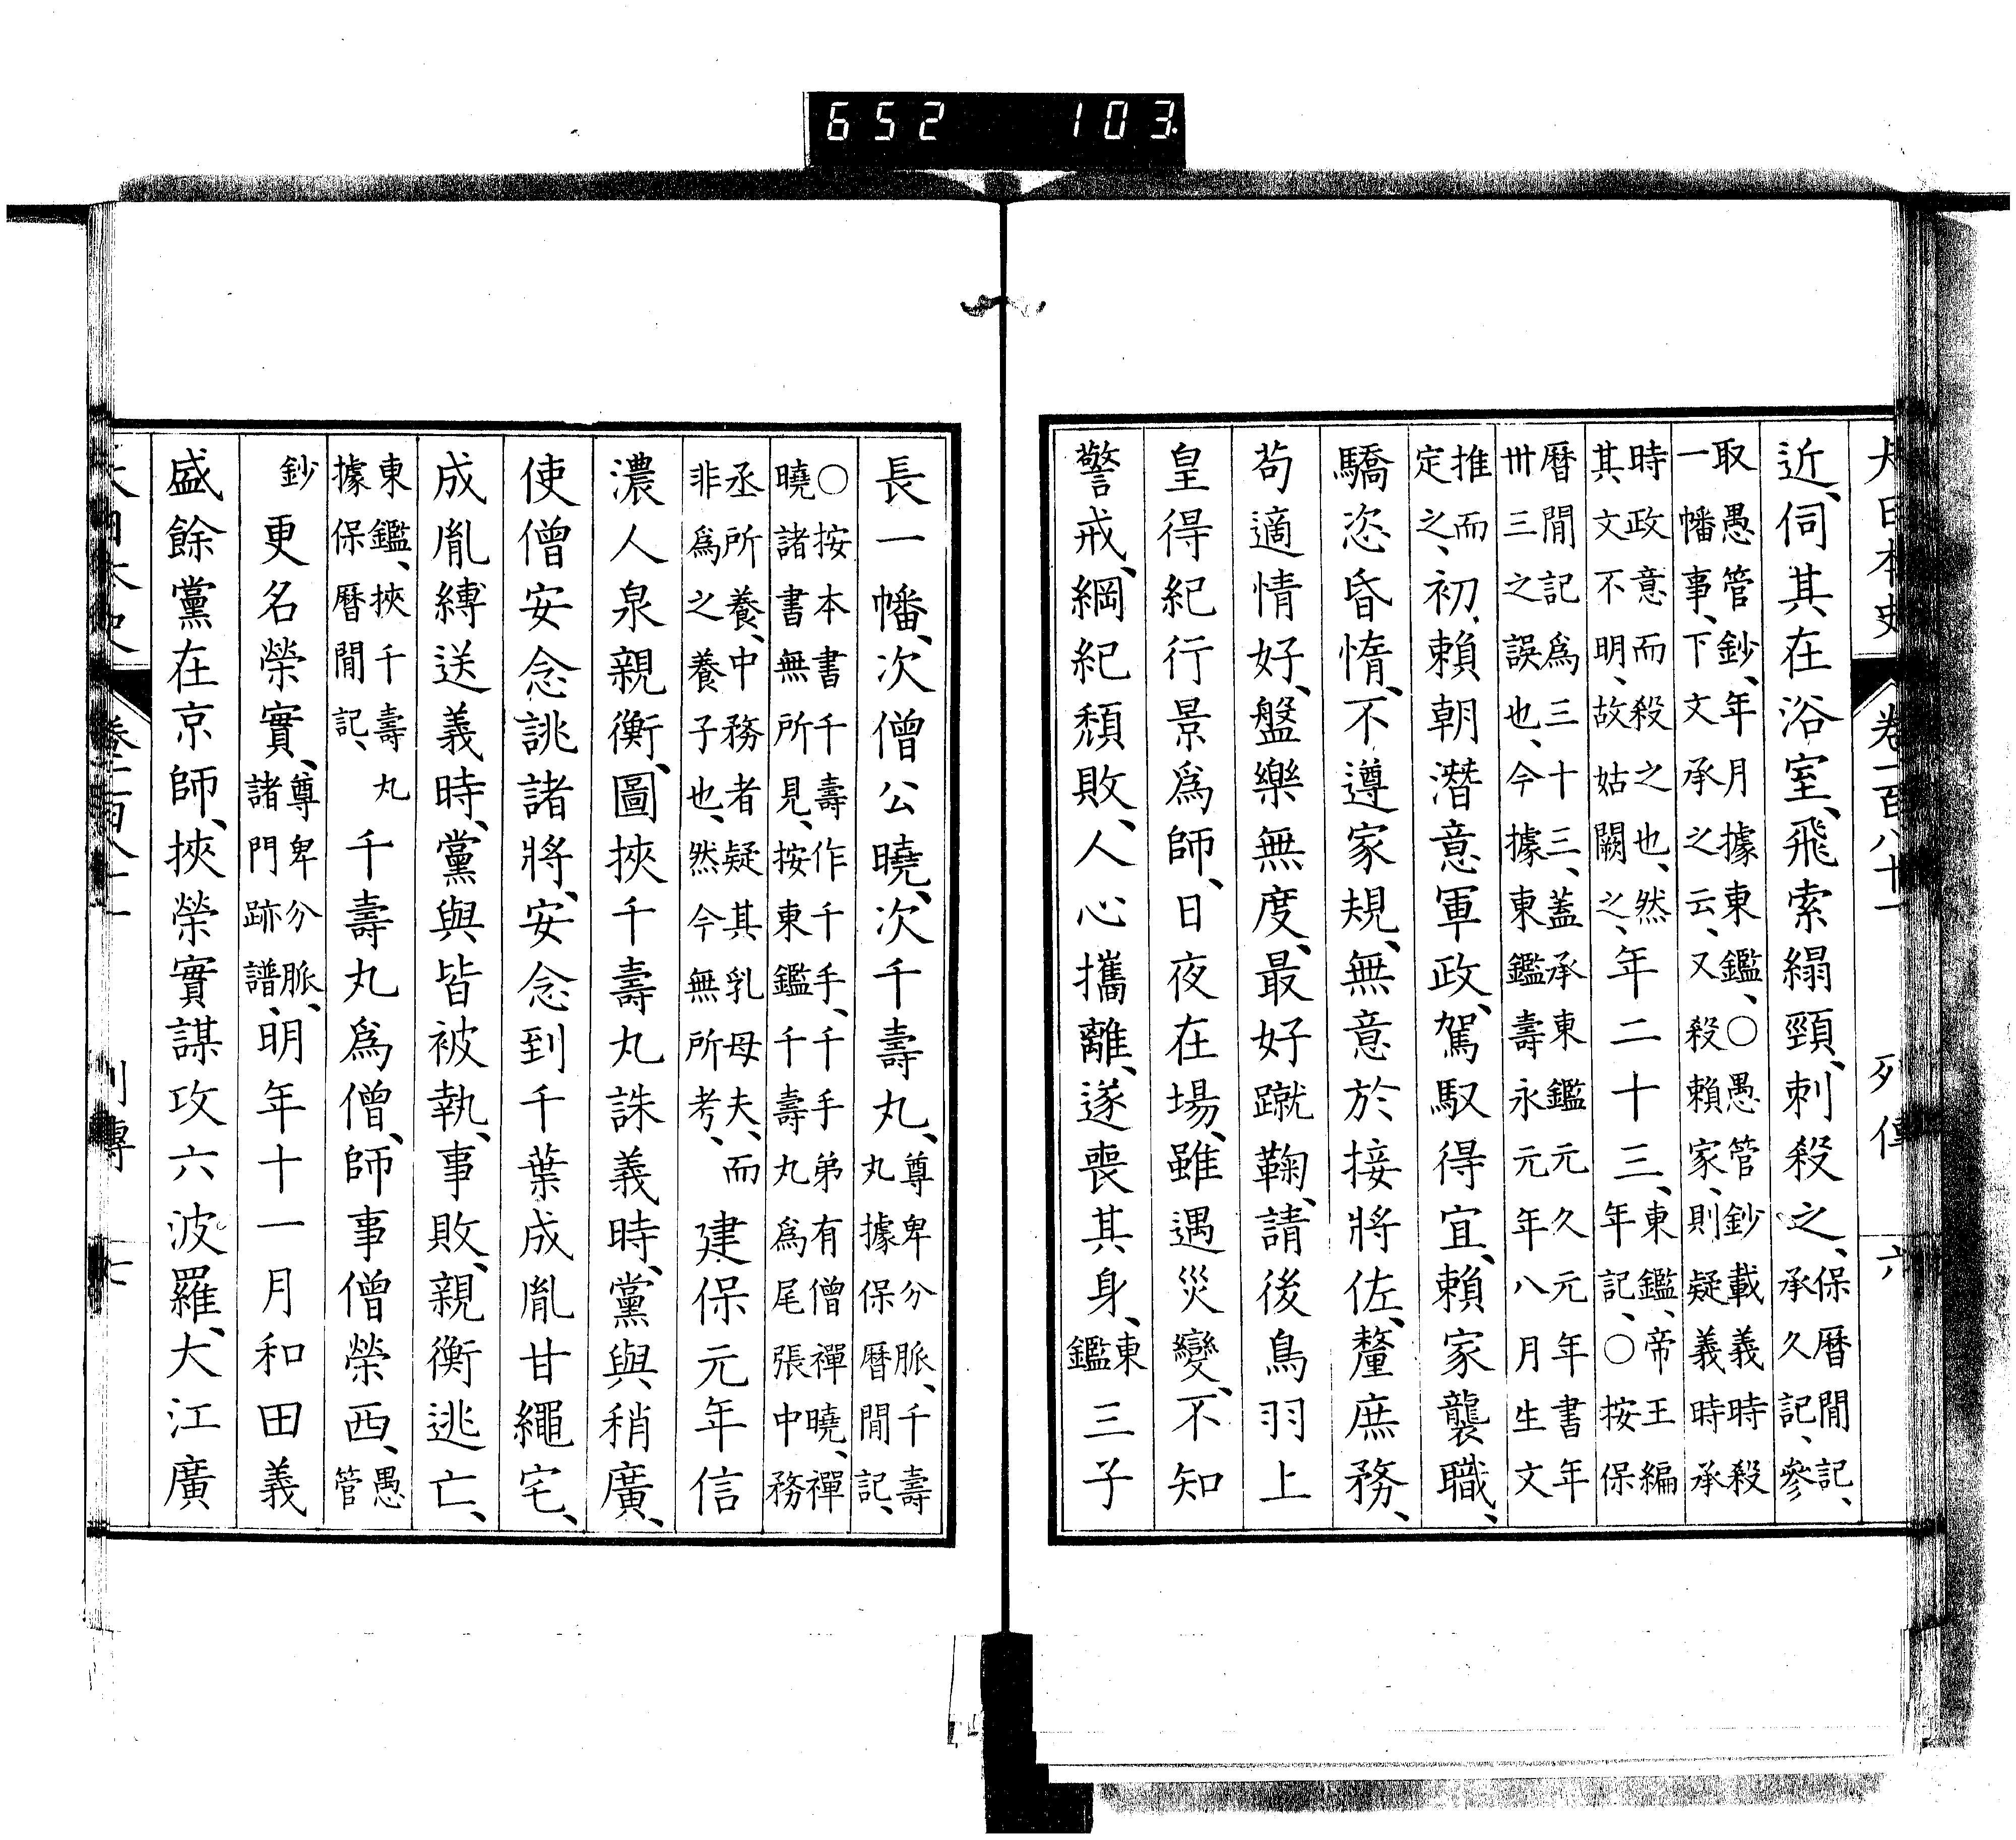 652 103
大日本史 卷一百八十一 列傳 六
近、伺其在浴室、飛索縊頸、刺殺之、保曆閒記、承久記、參
取愚管鈔、年月據東鑑、○愚管鈔載義時殺一幡事、下文承之云、又殺賴家、則疑義時承
時政意而殺之也、然其文不明、故姑闕之、年二十三、東鑑、帝王編年記、○按保
曆閒記爲三十三、蓋承東鑑元久元年書年卅三之誤也、今據東鑑壽永元年八月生文
推而定之、初賴朝潛意軍政、駕馭得宜、賴家襲職、
驕恣昏惰、不遵家規、無意於接將佐、釐庶務、
苟適情好、盤樂無度、最好蹴鞠、請後鳥羽上
皇得紀行景爲師、日夜在場、雖遇災變、不知
警戒、綱紀頹敗、人心攜離、遂喪其身、東鑑三子
長一幡、次僧公曉、次千壽丸、尊卑分脈、千壽丸據保曆閒記、
○按本書千壽作千手、千手弟有僧禪曉、禪曉諸書無所見、按東鑑千壽丸爲尾張中務
丞所養、中務者疑其乳母夫、而非爲之養子也、然今無所考、建保元年信
濃人泉親衡、圖挾千壽丸誅義時、黨與稍廣、
使僧安念誂諸將、安念到千葉成胤甘繩宅、
成胤縛送義時、黨與皆被執、事敗、親衡逃亡、
東鑑、挾千壽丸據保曆閒記、千壽丸爲僧、師事僧榮西、愚管
鈔更名榮實、尊卑分脈、諸門跡譜、明年十一月和田義
盛餘黨在京師、挾榮實謀攻六波羅、大江廣